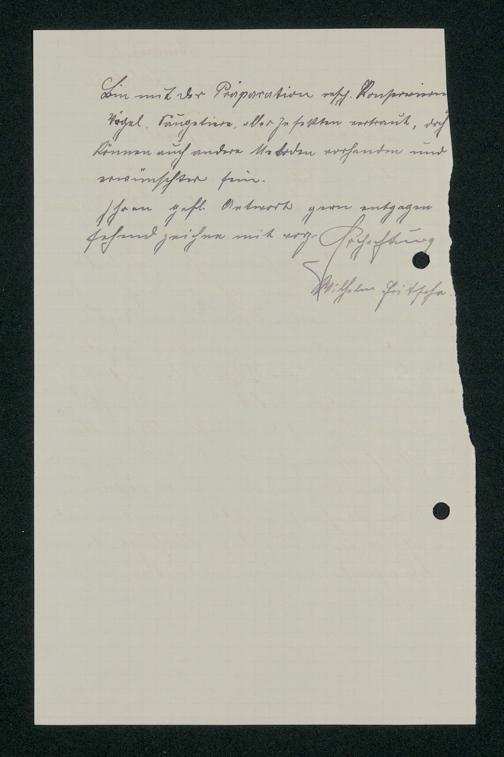 Bin mit der Präparation resp. Konservieren
Vögel, Säugetiere, aller Insekten vertraut, doch
können auch andere Metoden vorhanden und
erwünschter sein.
Ihren gefl. Antwort gern entgegen
sehend zeichne mit vorz. Hochachtung
Wilhelm Fritsche.